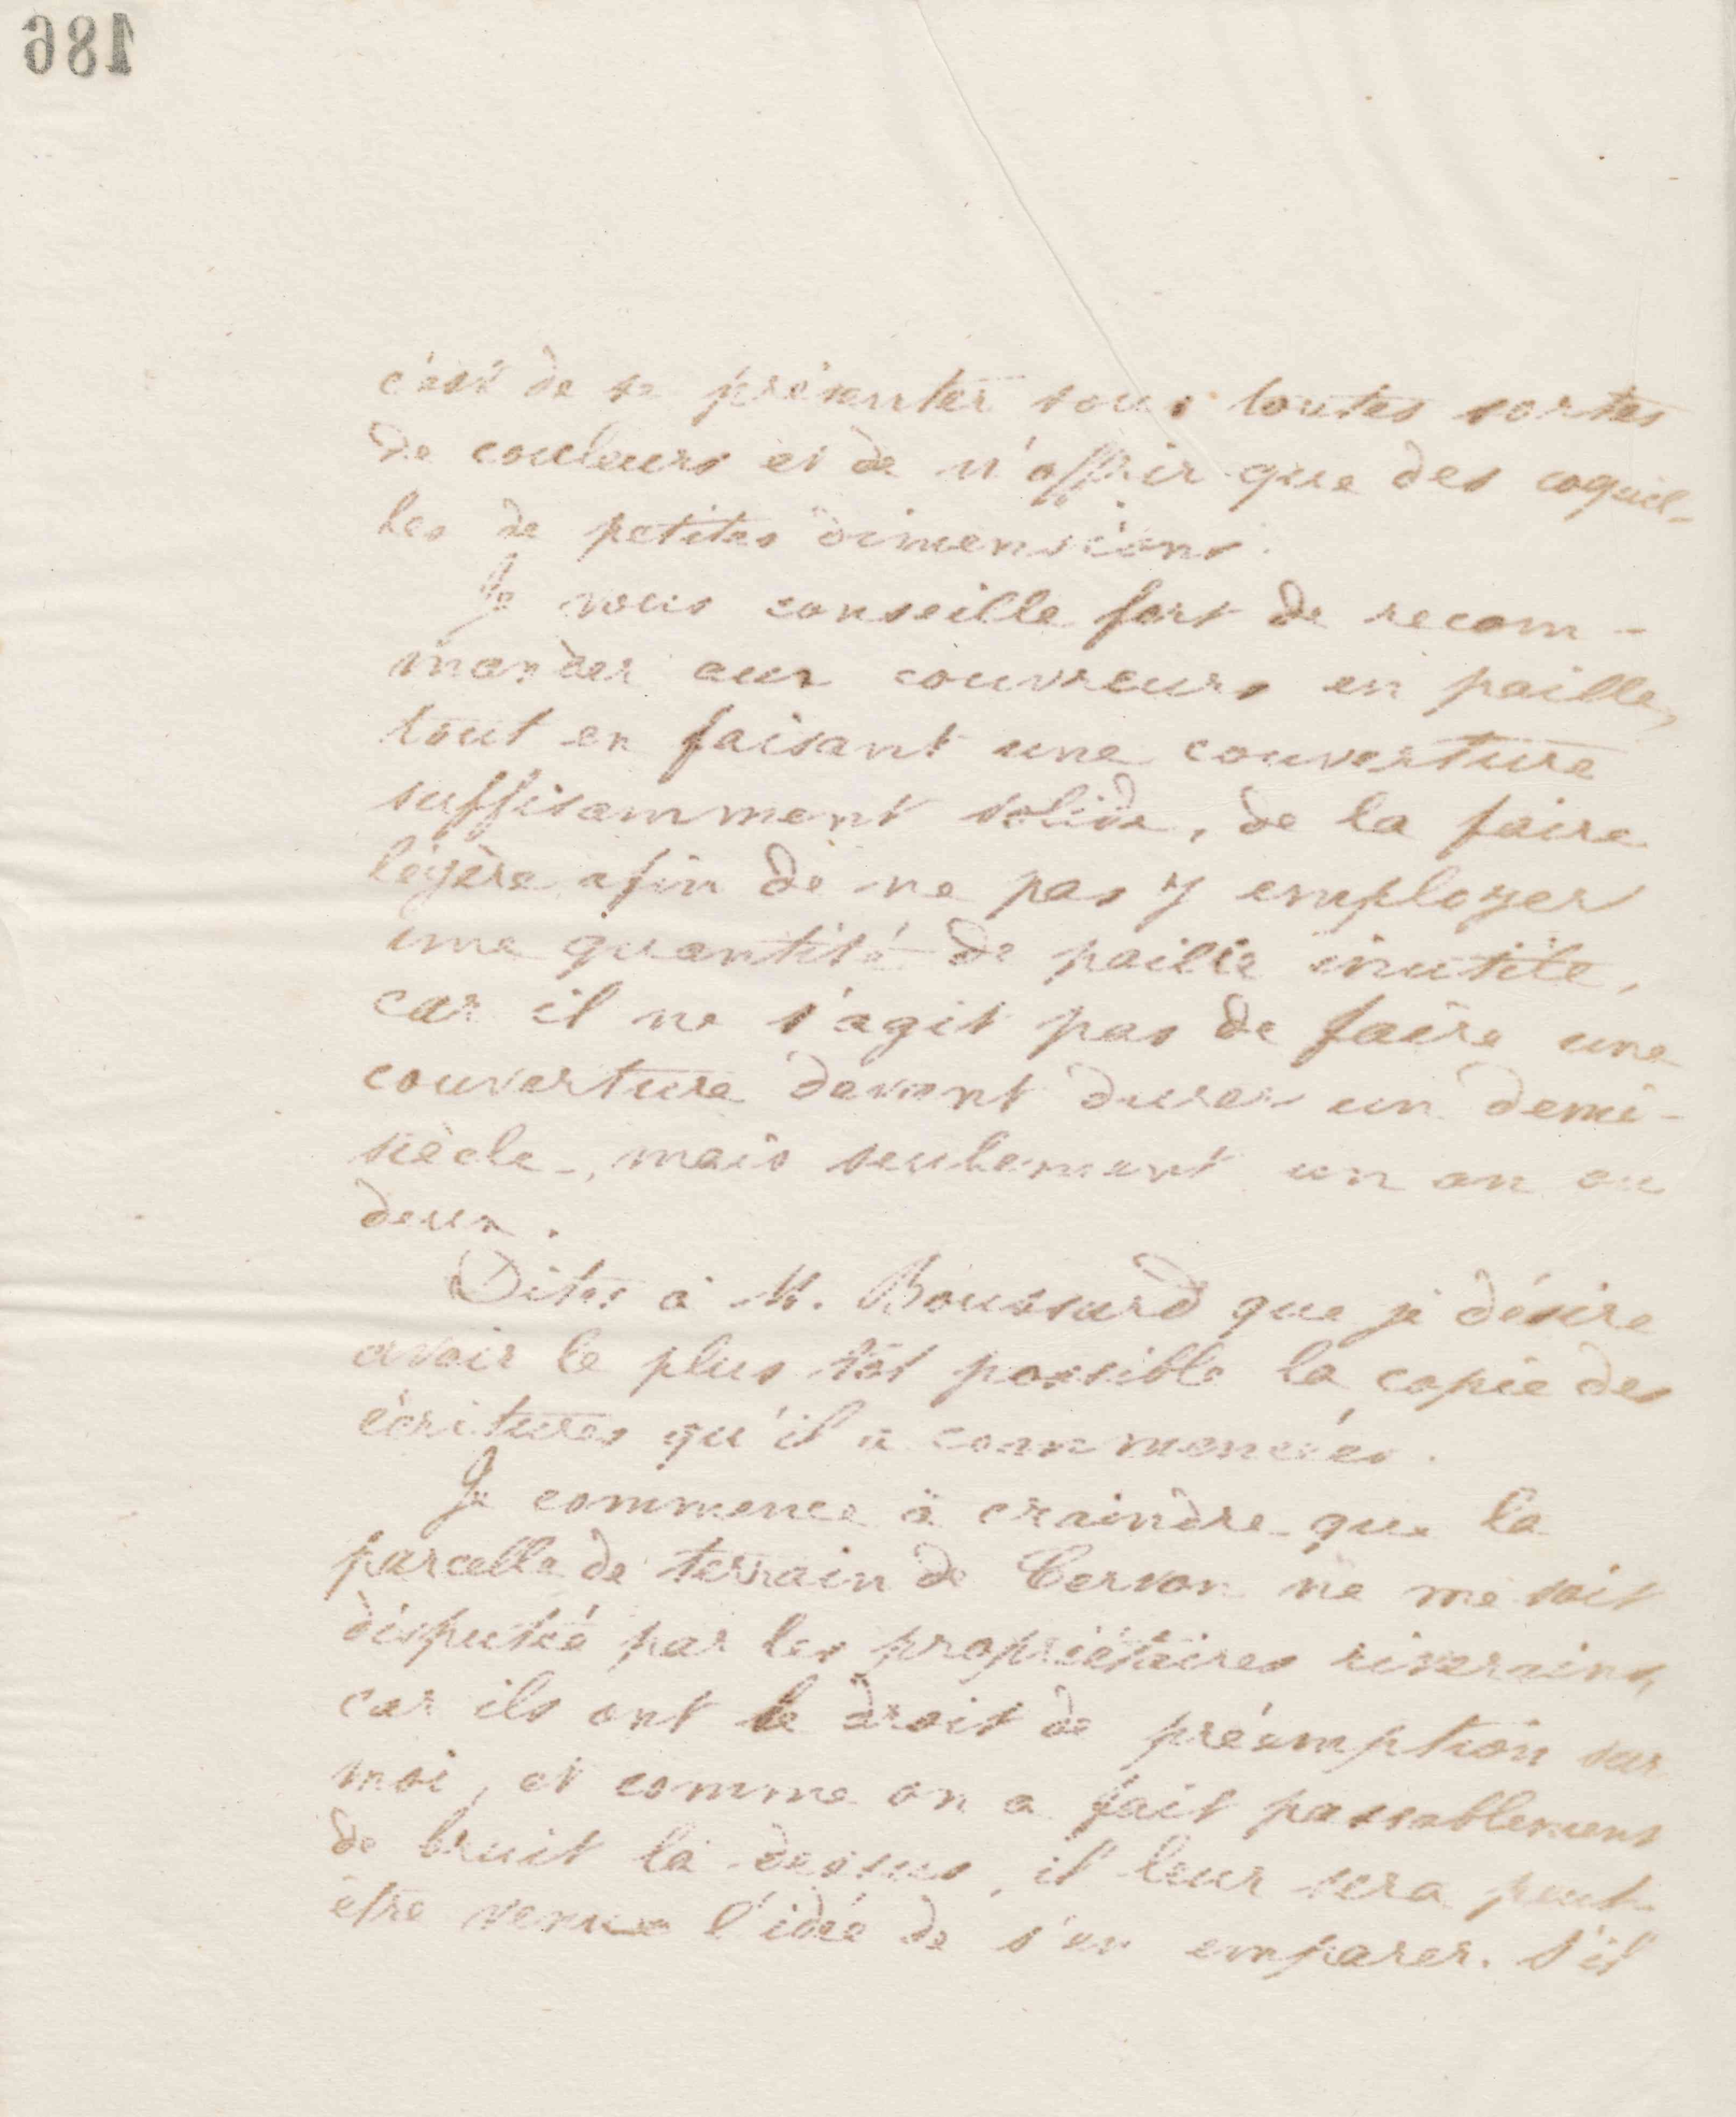 186
c'est de se présenter sous toutes sortes
de couleurs et de n'offrir que des coquil-
les de petites dimensions.
Je vous conseille fort de recom-
mander aux couvreurs en paille,
tout en faisant une couverture
suffisamment solide, de la faire
légère afin de ne pas y employer
une quantité de paille inutile,
car il ne s'agit pas de faire une
couverture devant durer un demi-
siècle, mais seulement un an ou
deux.
Dites à M. Boussard que je désire
avoir le plus tôt possible la copie des
écritures qu'il a commencées.
Je commence à craindre que la
parcelle de terrain de Cervon ne me soit
disputée par les propriétaires riverains,
car ils ont le droit de préemption sur
moi, et comme on a fait passablement
de bruit là dessus, il leur sera peut-
être venue l'idée de s'en emparer. S'il